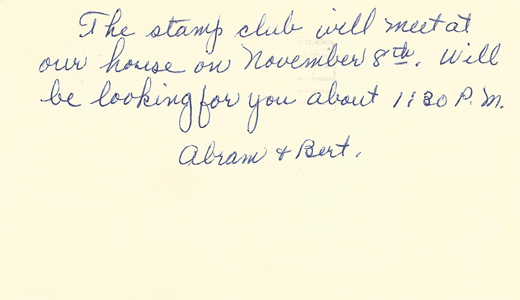 The stamp club will meet at
our house on November 8th. Will
be looking for you about 1:30 P.M.
Abram & Bert.